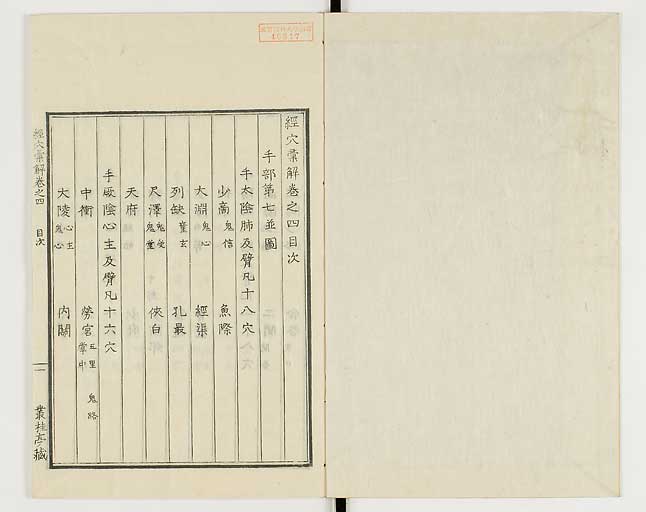 經穴彙解卷之四目次
手部第七並圖
手太陰肺及臂凡十八穴
少商 鬼信 魚際
太淵 鬼心 經渠
列缺 童玄 孔最
尺澤 鬼受 鬼堂 俠白
天府
手厥陰心主及臂凡十六穴
中衝 勞宮 五里 掌中 鬼路
大陵 心主 鬼心 內關
經穴彙解卷之四 目次 一 叢桂亭藏